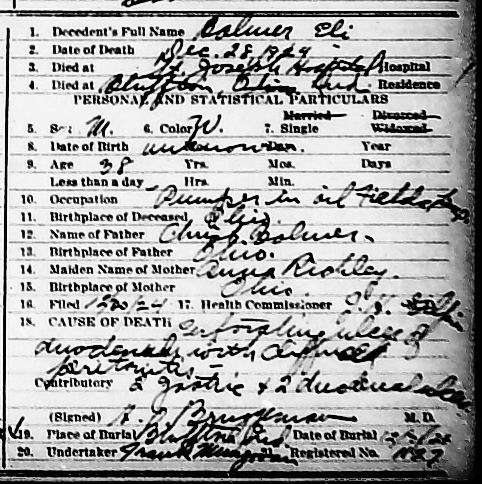 1. Decedent's Full Name Bolmer Eli
2. Date of Death Dec. 28, 1924
3. Died at St. Joseph Hospital Hospital
4. Died at Bluffton, Ind. Residence
PERSONAL AND STATISTICAL PARTICULARS
Married Divorced
5. Sex M. 6. Color W. 7. Single Widowed
8. Date of Birth unknown Year
9. Age 38 Yrs. Mos. Days
Less than a day Hrs. Min.
10. Occupation Pumper in oil fields
11. Birthplace of Deceased Ohio.
12. Name of Father Bolmer.
13. Birthplace of Father Ohio.
14. Maiden Name of Mother Anna Richley.
15. Birthplace of Mother Ohio.
16. Filed 17. Health Commissioner
18. CAUSE OF DEATH Perforating ulcer of
duodenum with diffused
peritonitis
Contributory 2 gastric & 2 duodenal ulcers
(Signed) M. D.
19. Place of Burial Bluffton Ind Date of Burial
20. Undertaker Frank 21. Registered No.